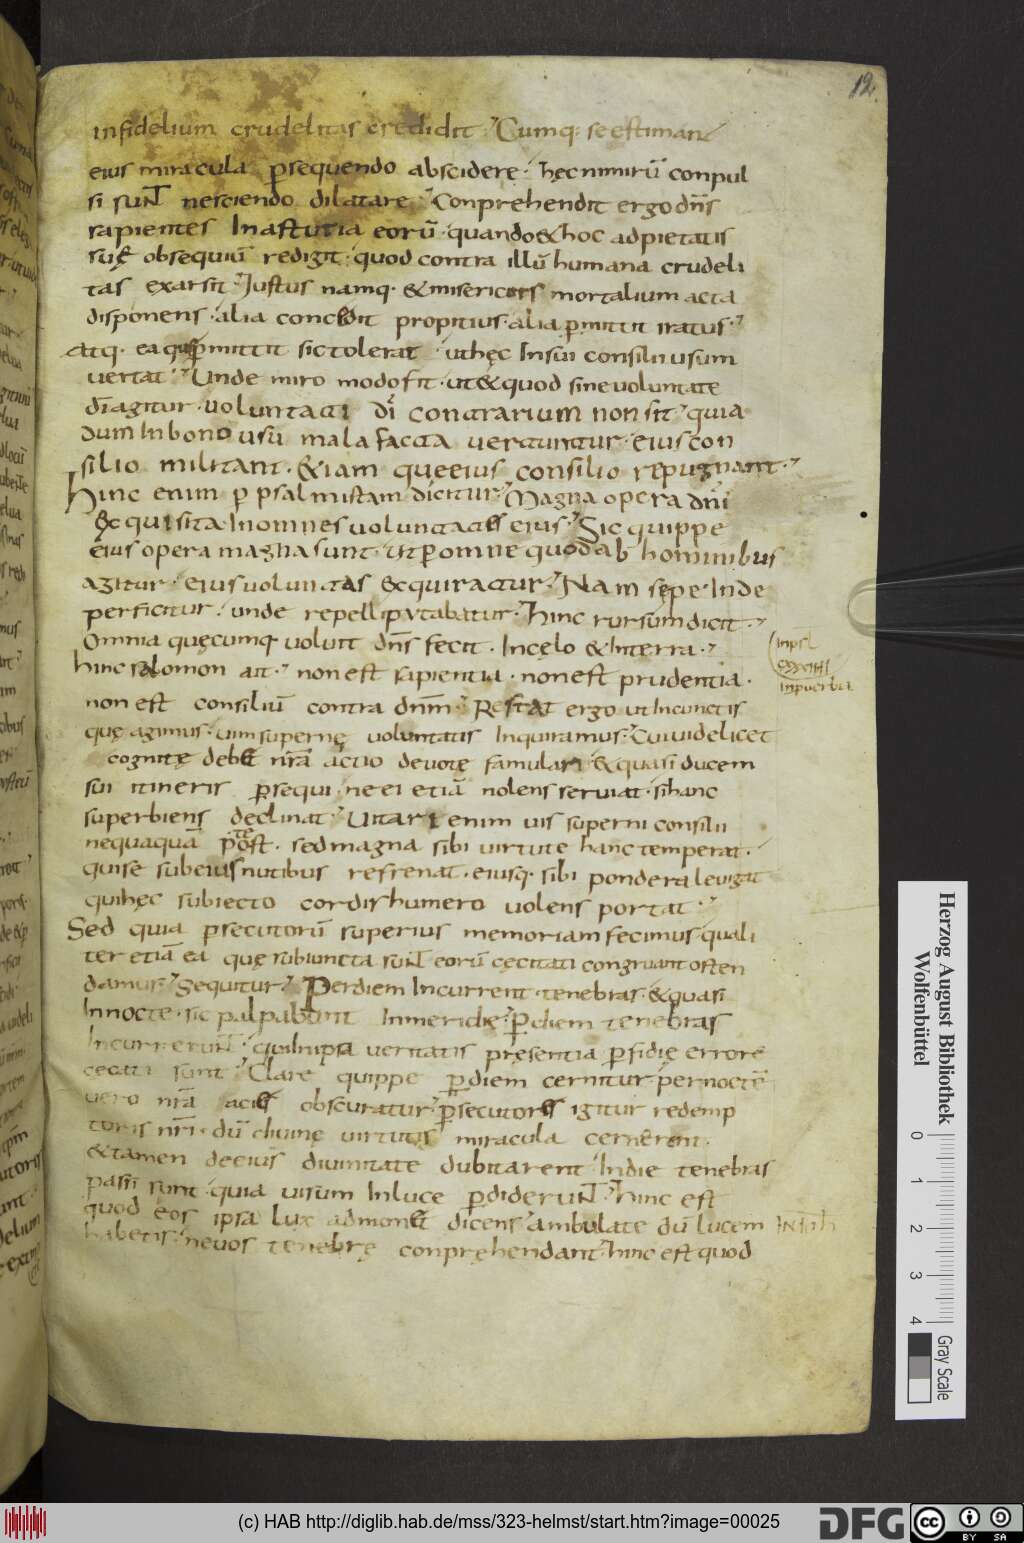 12
infidelium crudelitas credidit. Cumq: se estiman
eius miracula p̄sequendo abscidere. hęc nimirū conpul
si suNT nesciendo dilatare. Conprehendit ergo dn̄s
sapientes In astutia eorū. quando & hoc ad pietatis
suę obsequiū redigit. quod contra illū humana crudeli
tas exarsit. Iustus namq. & misericors mortalium acta
disponens. alia concedit propitius. alia p̄mittit iratus.
Atq. ea que p̄mittit sic tolerat. ut hęc In sui consilii usum
vertat. Unde miro modo fit. ut & quod sine voluntate
dī agitur. voluntati dī contrarium non sit. quia
dum In bono usū mala facta vertuntur. eius con
silio militant. & iam que eius consilio repugnant.
Hinc enim p psalmistam dicitur. Magna opera dn̄i
Exquisita In omnes voluntates eius. Sic quippe
eius opera magna sunt. ut p̄ omne quod ab hominibus
agitur. eius voluntas exquiratur. Nam sępe Inde
perficitur. unde repelli putabatur. Hinc rursum dicit.
Omnia quęcumq. voluit dn̄s fecit. In cęlo & In terra.
hinc salomon ait. non est sapientia. non est prudentia.
non est consiliū contra dn̄m. Restat ergo ut In cunctis
quę agimus. vim supernę voluntatis Inquiramus. Cui videlicet
cognitę debet nr̄a actio devotę famulari & quasi ducem
sui itineris p̄sequi. ne ei etiā nolens serviat. si hanc
superbiens declinat. Vitari enim vis superni consilii
nequaquā pōtest. sed magna sibi virtute hanc temperat.
qui se sub eius nutibus refrenat. eiusq. sibi pondera levigat
qui hęc subiecto cordis humero volens portat.
Sed quia p̄secutorū superius memoriam fecimus. quali
ter etiā ea quę subiuncta suNT eorū cęcitati congruant osten
damus. Sequitur. Per diem Incurrent tenebras. & quasi
In nocte. sic palpabunt In meridię. P̄ diem tenebras
IncurreruNT. qui In ipsa veritatis pręsentia p̄fidię errore
cecati sunt. Clare quippe p̄ diem cernitur. per noctē
vero nr̄a acies obscuratur. p̄secutores igitur redemp
toris nr̄i. dū divinę virtutis miracula cernerent.
& tamen de eius divinitate dubitarent. In die tenebras
passi sunt. quia visum In luce p̄dideruNT. hinc est
quod eos ipsa lux admonet dicens. ambulate dū lucem
habetis. ne vos tenebrę conpręhendant. hinc est quod
In psl
In pverbia
In ioh
Herzog August Bibliothek
Wolfenbüttel
0 1 2 3 4
Gray Scale
(c) HAB http://diglib.hab.de/mss/323-helmst/start.htm?image=00025
DFG
cc BY SA